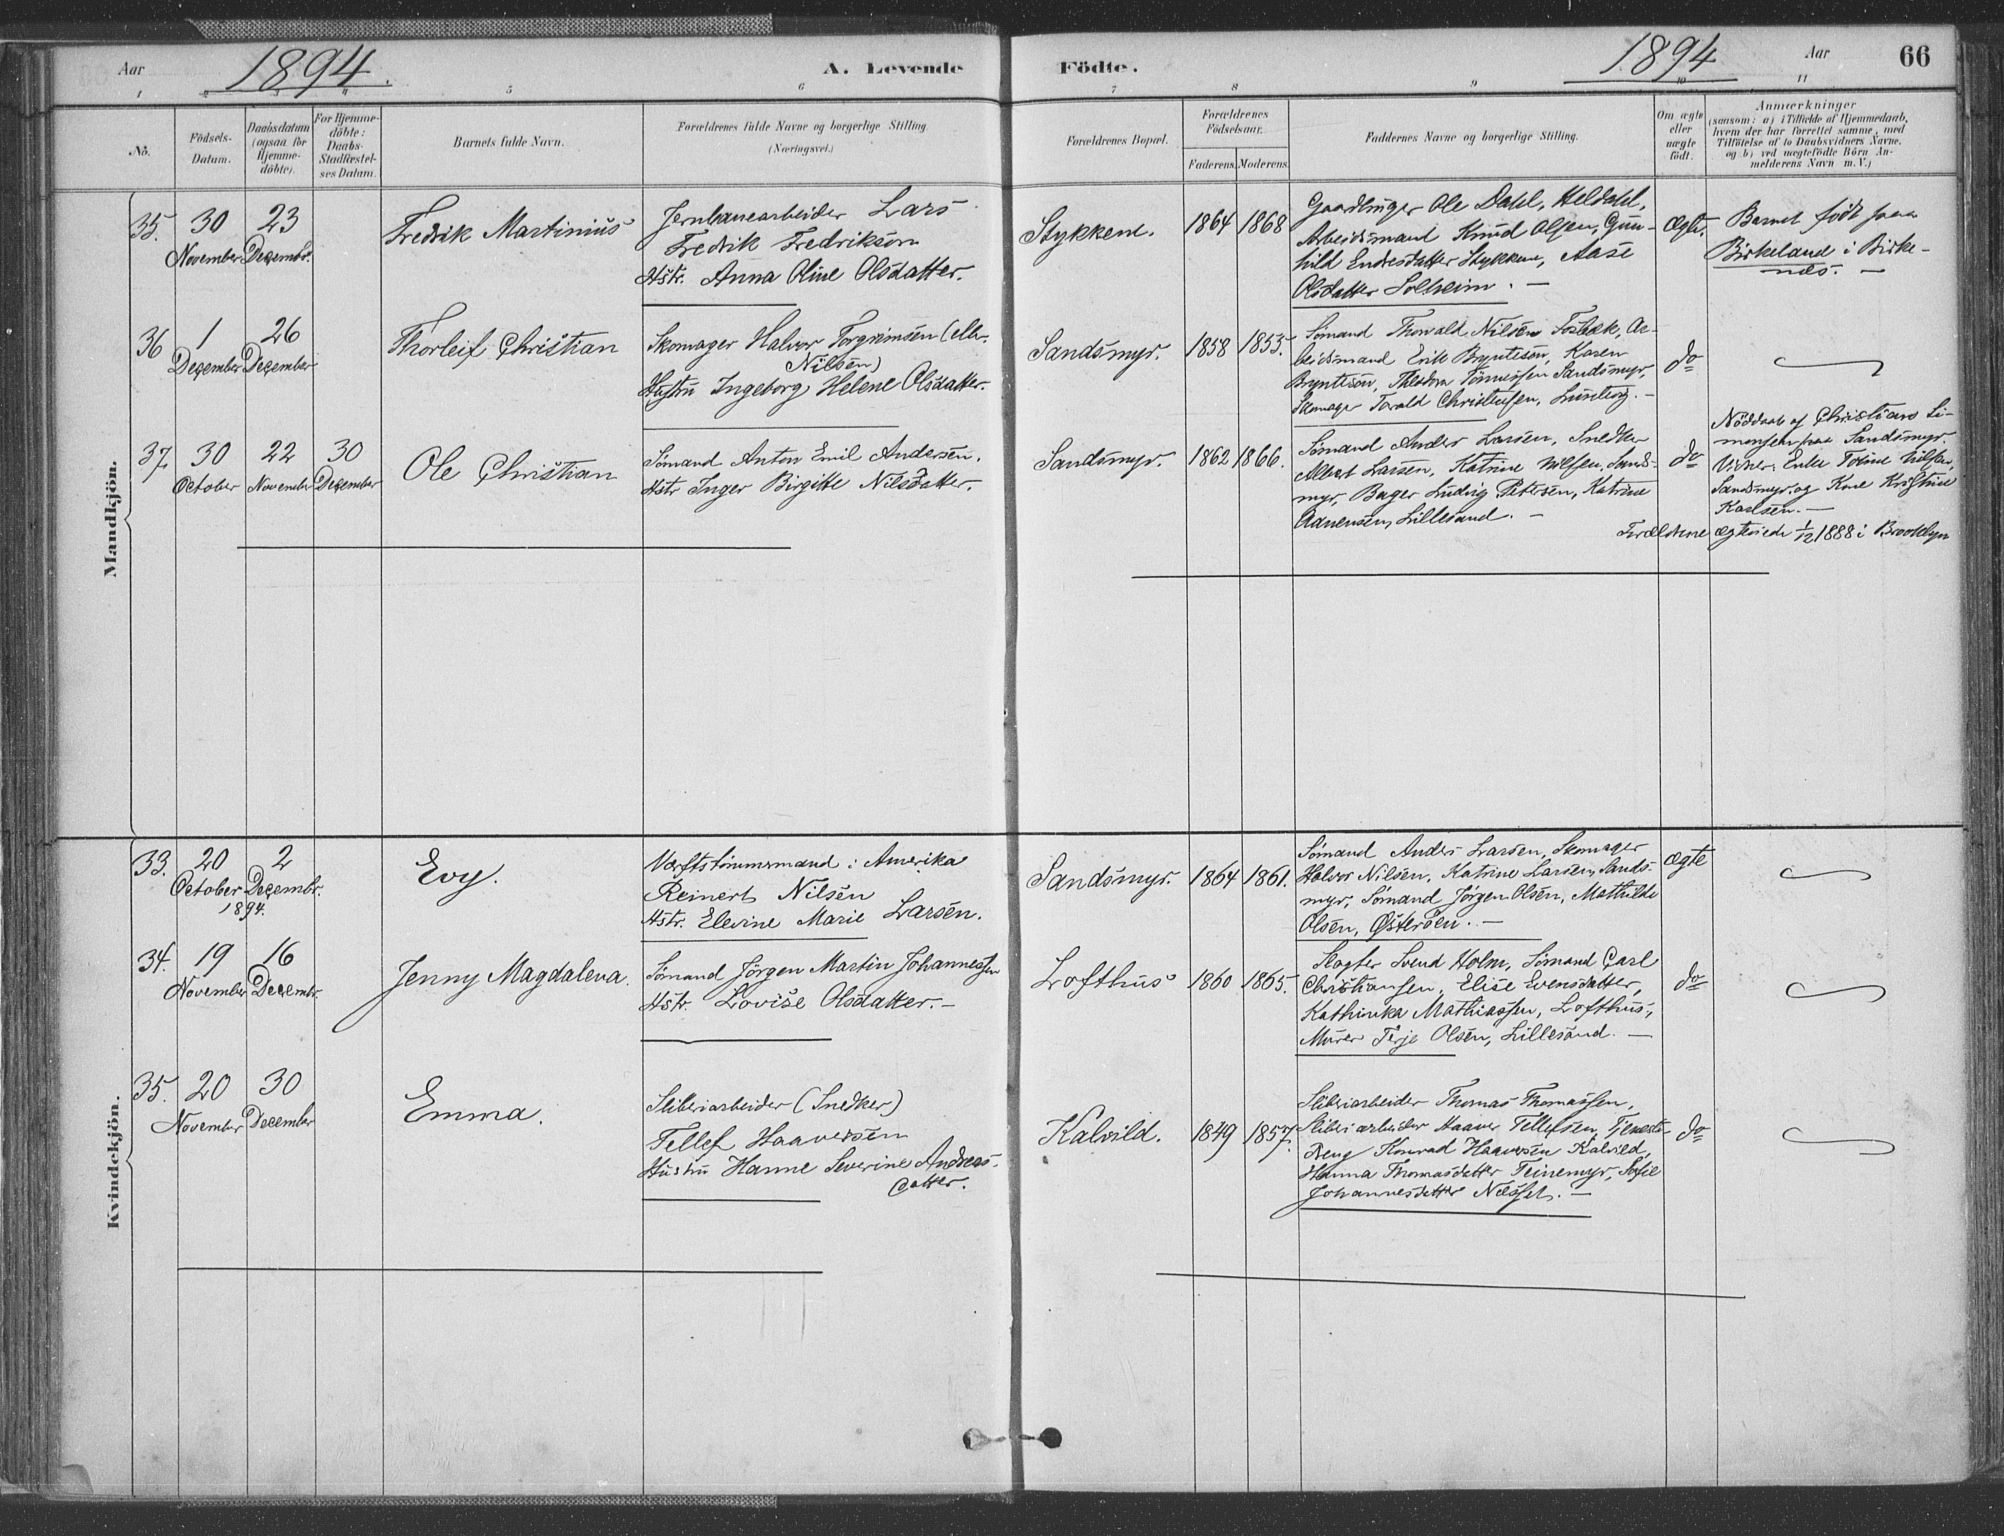 Aar 1894. A. Levende Födte. 1894 Aar 66
1 2 3 4 5 6 7 8 9 10 11
No.
Födsels-
Datum.
Daabsdatum
(ogsaa for
Hjemme-
döbte).
For Hjemme-
döbte:
Daabs-
Stadfæstel-
ses Datum.
Barnets fulde Navn.
Forældrenes fulde Navne og borgerlige Stilling.
(Næringsvei.)
Forældrenes Bopæl.
Forældrenes
Födselsaar.
Faderens. Moderens.
Faddernes Navne og borgerlige Stilling.
Om ægte
eller
uægte
födt.
Anmærkninger
(saasom: a) i Tilfælde af Hjemmedaab,
hvem der har forrettet samme, med
Tilföielse af to Daabsvidners Navne.
og b) ved uægtefödte Börn An-
melderens Navn m. V.)
Mandkjön.
35. 30 November 23 Decembr.
Fredrik Martinius
Jernbanearbeider Lars
Fredrik Fredrikson
Hstr. Anna Oline Olsdatter.
Stykkene. 1864 1868
Gaardbruger Ole Dahl, Heldahl,
Arbeidsmand Knud Olsen, Gun-
hild Endresdatter Stykkene, Aase
Olsdatter Solheim. —
Ægte.
Barnet födt paa
Birkeland i Birke-
næs. —
36 1 December 26 December
Thorleif Christian
Skomager Halvor Torgrimsen (ell.
Nilsen)
Hustru Ingeborg Helene Olsdatter.
Sandsmyr. 1858 1853.
Sømand Thorvald Nilsen Fosbæk, Ar-
beidsmand Erik Bryntesen, Karen
Bryntesen, Theodora Tønnessen Sandsmyr,
Skomager Torald Christensen, . —
do
37. 30 October 22 November 30 December
Ole Christian
Sømand Anton Emil Andersen.
Hstr Inger Birgitte Nilsdatter.
Sandsmyr. 1862 1866.
Sømand Anders Larsen, Snedker
Albert Larsen, Katrine Nilsen, Sands-
myr, Bager Ludvig Petersen, Katrine
Lillesand. —
do
Nöddøbt af Christiane Si-
monsen paa Sandsmyr.
Vidner: Enke Tobine Nilsen,
Sandsmyr, og Kone Kristine
Karlsen. —
Forældrene ægteviede 1/12 1888 i Brooklyn
Kvindekjön.
33. 20 October 1894. 2 Decembr.
Evy.
Værftstömmermand i Amerika
Reinert Nilsen
Hstr. Elevine Marie Larsen.
Sandsmyr. 1864 1861.
Sömand Anders Larsen, Skomager
Halvor Nilsen, Katrine Larsen, Sands-
myr, Sømand Jørgen Olsen, Mathilde
Olsen, Østerøen. —
ægte
34. 19 November 16 Decembr.
Jenny Magdalena.
Sömand Jörgen Martin Johannessen
Hstr. Lovise Olsdatter. —
Lofthus 1860 1865.
Slagter Svend Holm, Sømand Carl
Christiansen, Elise Evensdatter,
Kathinka Mathiassen, Lofthus,
Murer Terje Olsen, Lillesand. —
do
35. 20 November 30 December
Emma.
Sliberiarbeider (Snedker)
Tellef Haaversen
Hustru Hanne Severine Andreas-
datter.
Kalvild. 1849 1857.
Sliberiarbeider Thomas Thomassen,
Sliberiarbeider Haaver Tellefsen, Tjeneste-
dreng Konrad Haaversen Kalvild,
Hanna Thomasdatter Teinemyr, Sofie
Johannesdatter Næsset. —
do